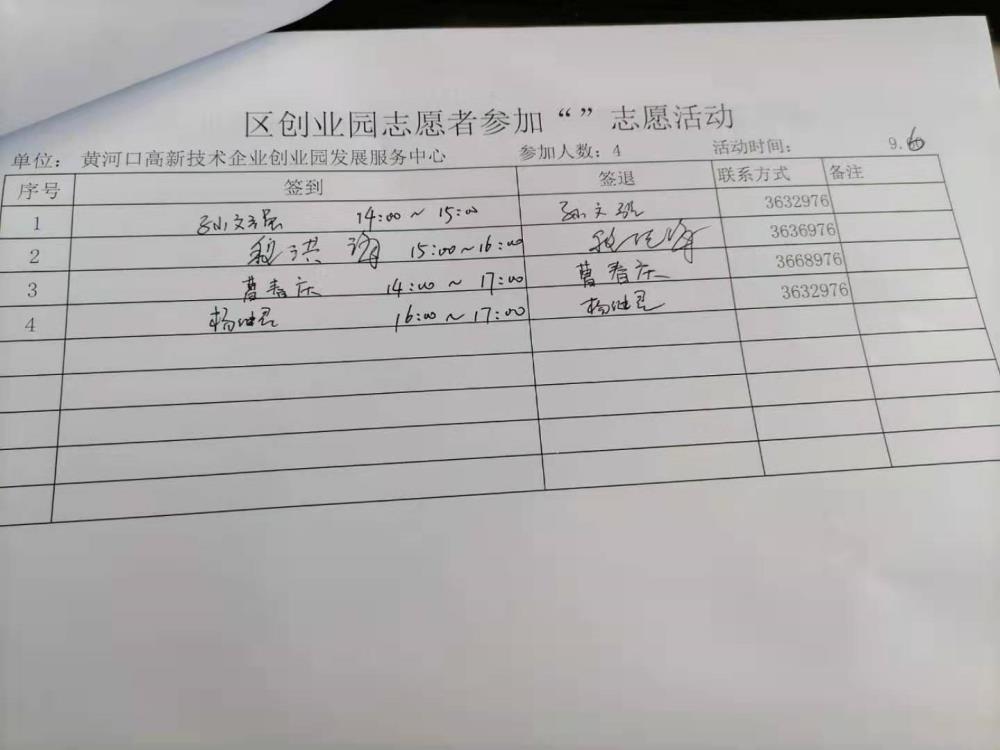 区创业园志愿者参加“”志愿活动
单位： 黄河口高新技术企业创业园发展服务中心 参加人数：4 活动时间： 9.
序号 签到 签退 联系方式 备注
1 孙文强 14:00～15:00 孙文强 3632976
2 15:00～16:00 3636976
3 曹春庆 14:00～17:00 曹春庆 3668976
4 杨继君 16:00～17:00 杨继君 3632976